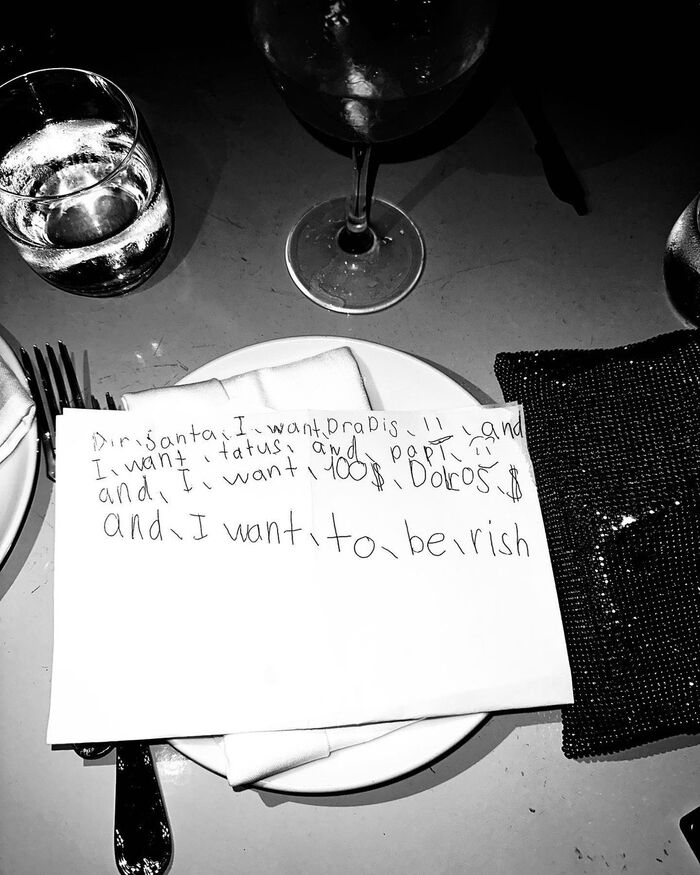 Dir、Santa、I、want、DraDis、!!、and
I、want、tatus、and、papi、
and、I、want、100$、Dolros、$
and、I want、to、be、rish